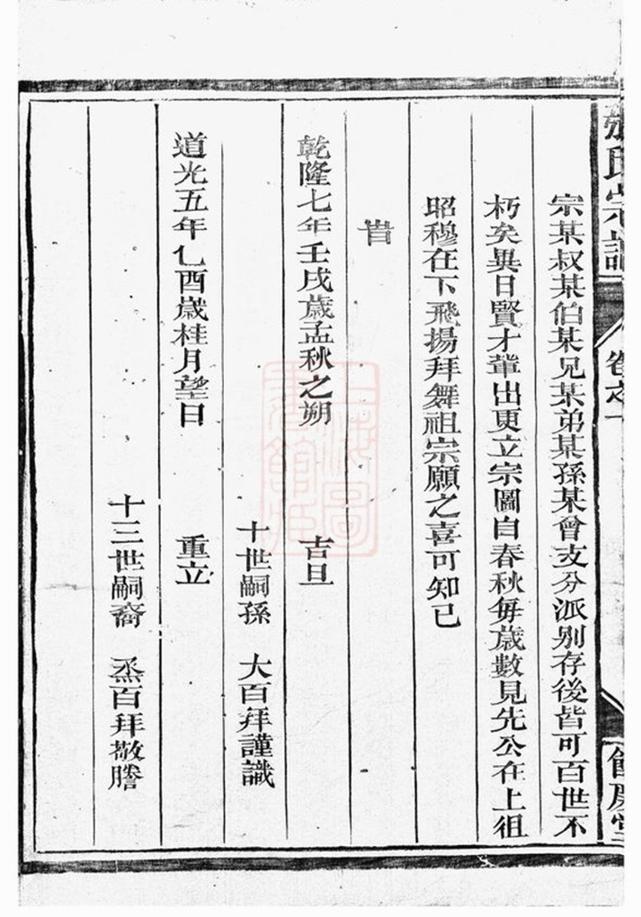 張氏宗譜 卷之一
宗某叔某伯某兄某弟某孫某曾支分派别存後皆可百世不
朽矣異日賢才輩出更立宗圖自春秋每歲數見先公在上徂
昭穆在下飛揚拜舞祖宗願之喜可知已
旹
乾隆七年壬戌歲孟秋之朔 吉旦
十世嗣孫 大百拜謹識
道光五年乙酉歲桂月望日 重立
十三世嗣裔 烝百拜敬謄
上海圖書館藏